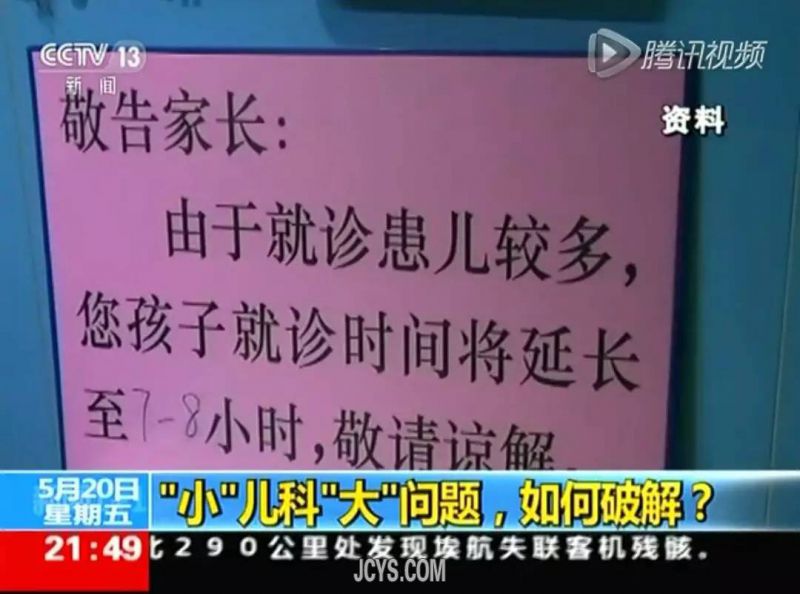 CCTV 13
新闻
腾讯视频
资料
敬告家长:
由于就诊患儿较多,
您孩子就诊时间将延长
至7-8小时,敬请谅解.
5月20日
星期五
"小"儿科"大"问题，如何破解？
21:49
北290公里处发现埃航失联客机残骸.
JCYS.COM